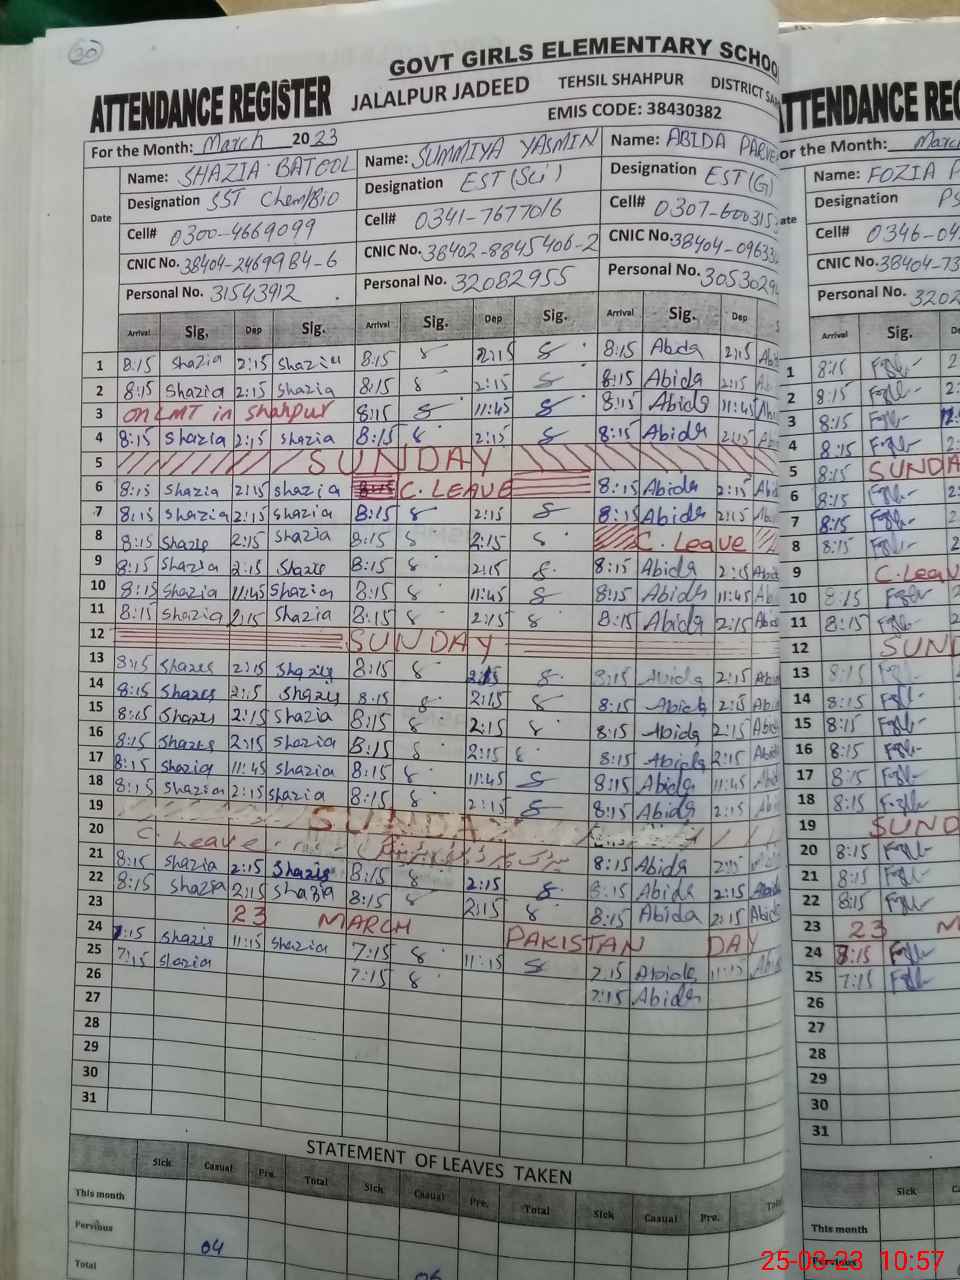 30
GOVT GIRLS ELEMENTARY SCHOO
ATTENDANCE REGISTER JALALPUR JADEED TEHSIL SHAHPUR DISTRICT SA
EMIS CODE: 38430382
For the Month: March 2023
Date
Name: SHAZIA BATOOL Name: SUMMIYA YASMIN Name: ABIDA PARVE
Designation SST Chem/Bio Designation EST (Sci) Designation EST (G)
Cell# 0300-4669099 Cell# 0341-7677016 Cell# 0307-600315
CNIC No. 38404-2469984-6 CNIC No. 38402-8845406-2 CNIC No. 38404-0963
Personal No. 31543912 Personal No. 32082955 Personal No. 3053029
Arrival Sig. Dep Sig. Arrival Sig. Dep Sig. Arrival Sig. Dep S
1 8:15 Shazia 2:15 Shazia 8:15 2:15 8:15 Abida 2:15 Abi
2 8:15 Shazia 2:15 Shazia 8:15 2:15 8:15 Abida 2:15 Ab
3 on LMT in Shahpur 8:15 11:45 8:15 Abida 11:45 Ab
4 8:15 Shazia 2:15 Shazia 8:15 2:15 8:15 Abida 2:15 Ab
5 SUNDAY
6 8:15 Shazia 2:15 Shazia C. LEAVE 8:15 Abida 2:15 Abi
7 8:15 Shazia 2:15 Shazia 8:15 2:15 8:15 Abida 2:15 Abi
8 8:15 Shazia 2:15 Shazia 8:15 2:15 C. Leave
9 8:15 Shazia 2:15 Shazia 8:15 2:15 8:15 Abida 2:15 Abid
10 8:15 Shazia 11:45 Shazia 8:15 11:45 8:15 Abida 11:45 Ab
11 8:15 Shazia 2:15 Shazia 8:15 2:15 8:15 Abida 2:15 Abi
12 SUNDAY
13 8:15 Shazia 2:15 Shazia 8:15 2:15 8:15 Abida 2:15 Abi
14 8:15 Shazia 2:15 Shazia 8:15 2:15 8:15 Abida 2:15 Abi
15 8:15 Shazia 2:15 Shazia 8:15 2:15 8:15 Abida 2:15 Abi
16 8:15 Shazia 2:15 Shazia 8:15 2:15 8:15 Abida 2:15 Abi
17 8:15 Shazia 11:45 Shazia 8:15 11:45 8:15 Abida 11:45 Abi
18 8:15 Shazia 2:15 Shazia 8:15 2:15 8:15 Abida 2:15 Ab
19 SUNDAY
20 C. Leave
21 8:15 Shazia 2:15 Shazia 8:15 2:15 8:15 Abida 2:15 Abida
22 8:15 Shazia 2:15 Shazia 8:15 2:15 8:15 Abida 2:15 Abid
23 23 MARCH PAKISTAN DAY
24 7:15 Shazia 11:15 Shazia 7:15 11:15 7:15 Abida 11:15 Abi
25 7:15 Shazia 7:15 7:15 Abida
26
27
28
29
30
31
STATEMENT OF LEAVES TAKEN
Sick Casual Pre. Total Sick Casual Pre. Total Sick Casual Pre. Tot
This month
Pervious 04 06
Total
TTENDANCE REG
or the Month: March
ate
Name: FOZIA P
Designation PS
Cell# 0346-04
CNIC No. 38404-73
Personal No. 3202
Arrival Sig. D
1 8:15
2 8:15
3 8:15
4 8:15
5 8:15 SUNDA
6 8:15
7 8:15
8 8:15
9 C. Leav
10 8:15
11 8:15
12 SUN
13 8:15
14 8:15
15 8:15
16 8:15
17 8:15
18 8:15
19 SUND
20 8:15
21 8:15
22 8:15
23 23 M
24 7:15
25 7:15
26
27
28
29
30
31
Sick C
This month
Pervious
25-03-23 10:57